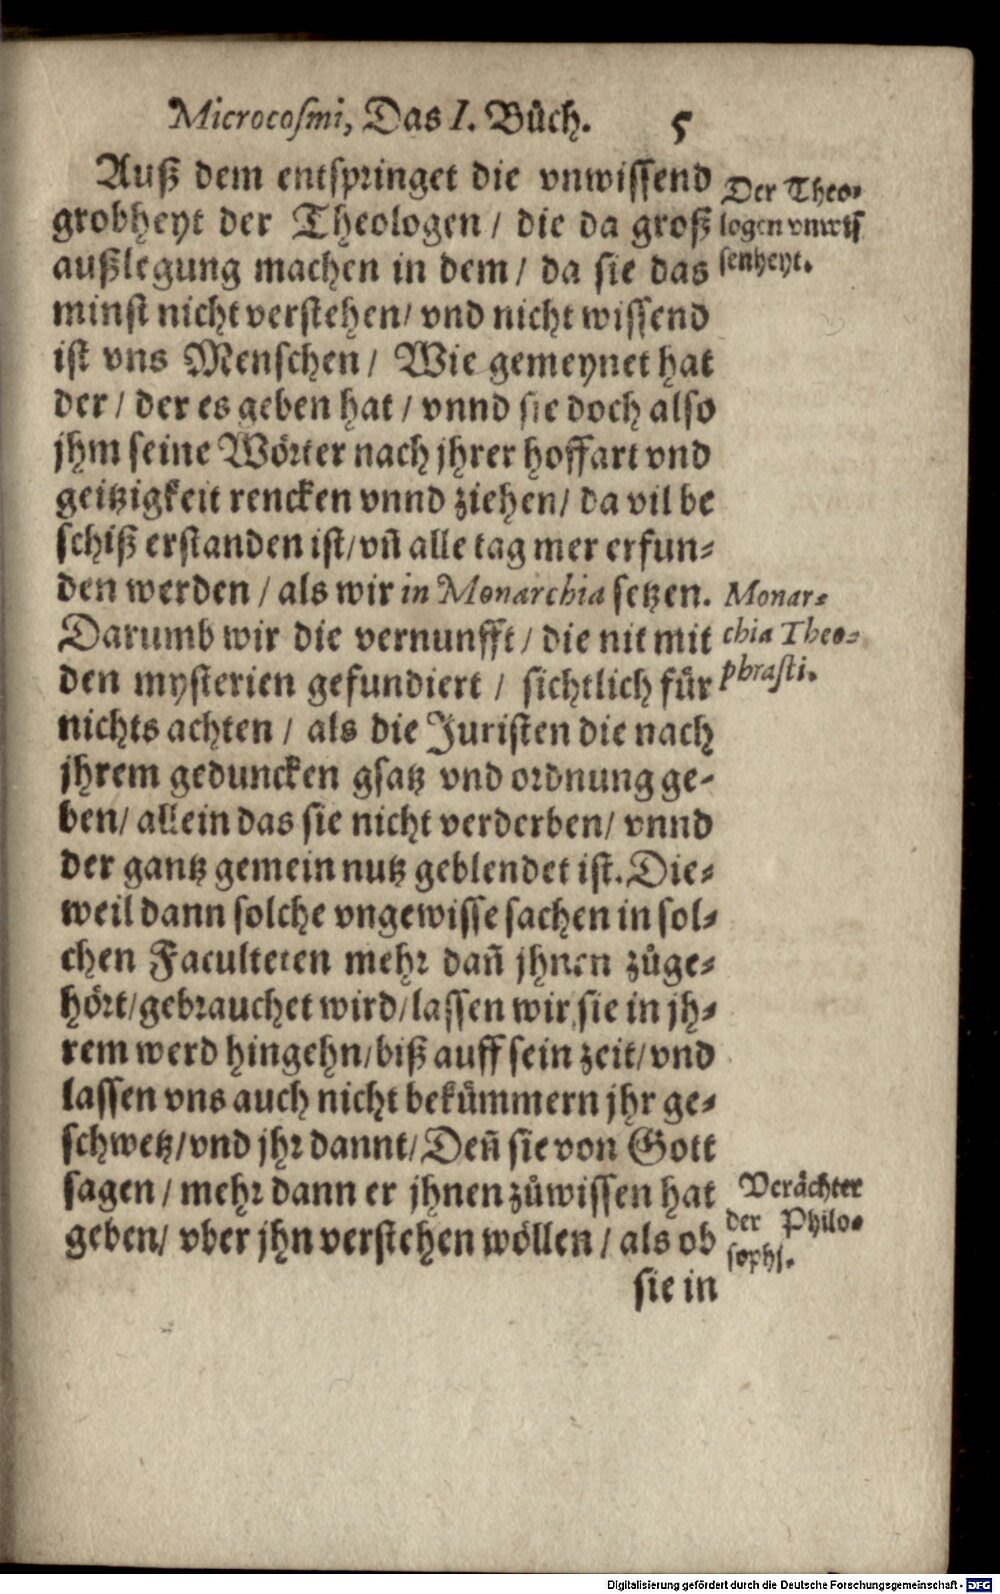 Microcosmi, Das I. Bůch. 5
Auß dem entspringet die vnwissend
grobheyt der Theologen / die da groß
außlegung machen in dem / da sie das
minst nicht verstehen / vnd nicht wissend
ist vns Menschen / Wie gemeynet hat
der / der es geben hat / vnnd sie doch also
jhm seine Wörter nach jhrer hoffart vnd
geitzigkeit rencken vnnd ziehen / da vil be
schiß erstanden ist / vñ alle tag mer erfun-
den werden / als wir in Monarchia setzen.
Darumb wir die vernunfft / die nit mit
den mysterien gefundiert / sichtlich für
nichts achten / als die Juristen die nach
jhrem geduncken gsatz vnd ordnung ge-
ben / allein das sie nicht verderben / vnnd
der gantz gemein nutz geblendet ist. Die-
weil dann solche vngewisse sachen in sol-
chen Faculteten mehr dañ jhnen zůge-
hört / gebrauchet wird / lassen wir sie in jh-
rem werd hingehn / biß auff sein zeit / vnd
lassen vns auch nicht bekümmern jhr ge-
schwetz / vnd jhr dannt / Deñ sie von Gott
sagen / mehr dann er jhnen zůwissen hat
geben / vber jhn verstehen wöllen / als ob
sie in
Der Theo-
logen vnwis
senheyt.
Monar-
chia Theo-
phrasti.
Verächter
der Philo-
sophj.
Digitalisierung gefördert durch die Deutsche Forschungsgemeinschaft - DFG